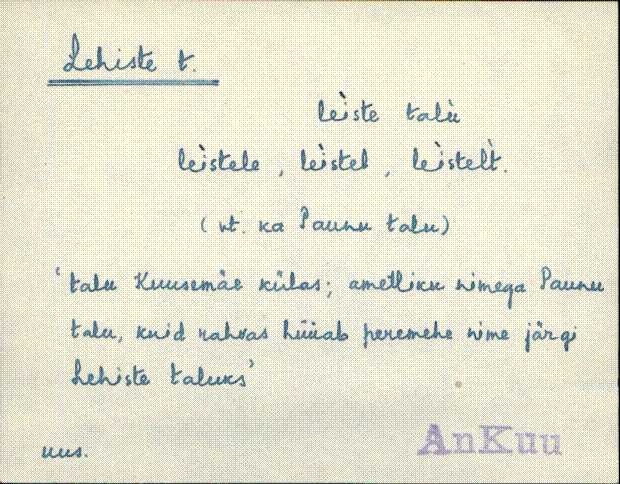 Lehiste t.
leìste talù
leìstele, leìstel, leìstelt̀.
(vt. ka Paunu talu)
'talu Kuusemäe külas; ametliku nimega Paunu
talu, kuid rahvas hüüab peremehe nime järgi
Lehiste taluks'
uus.
AnKuu